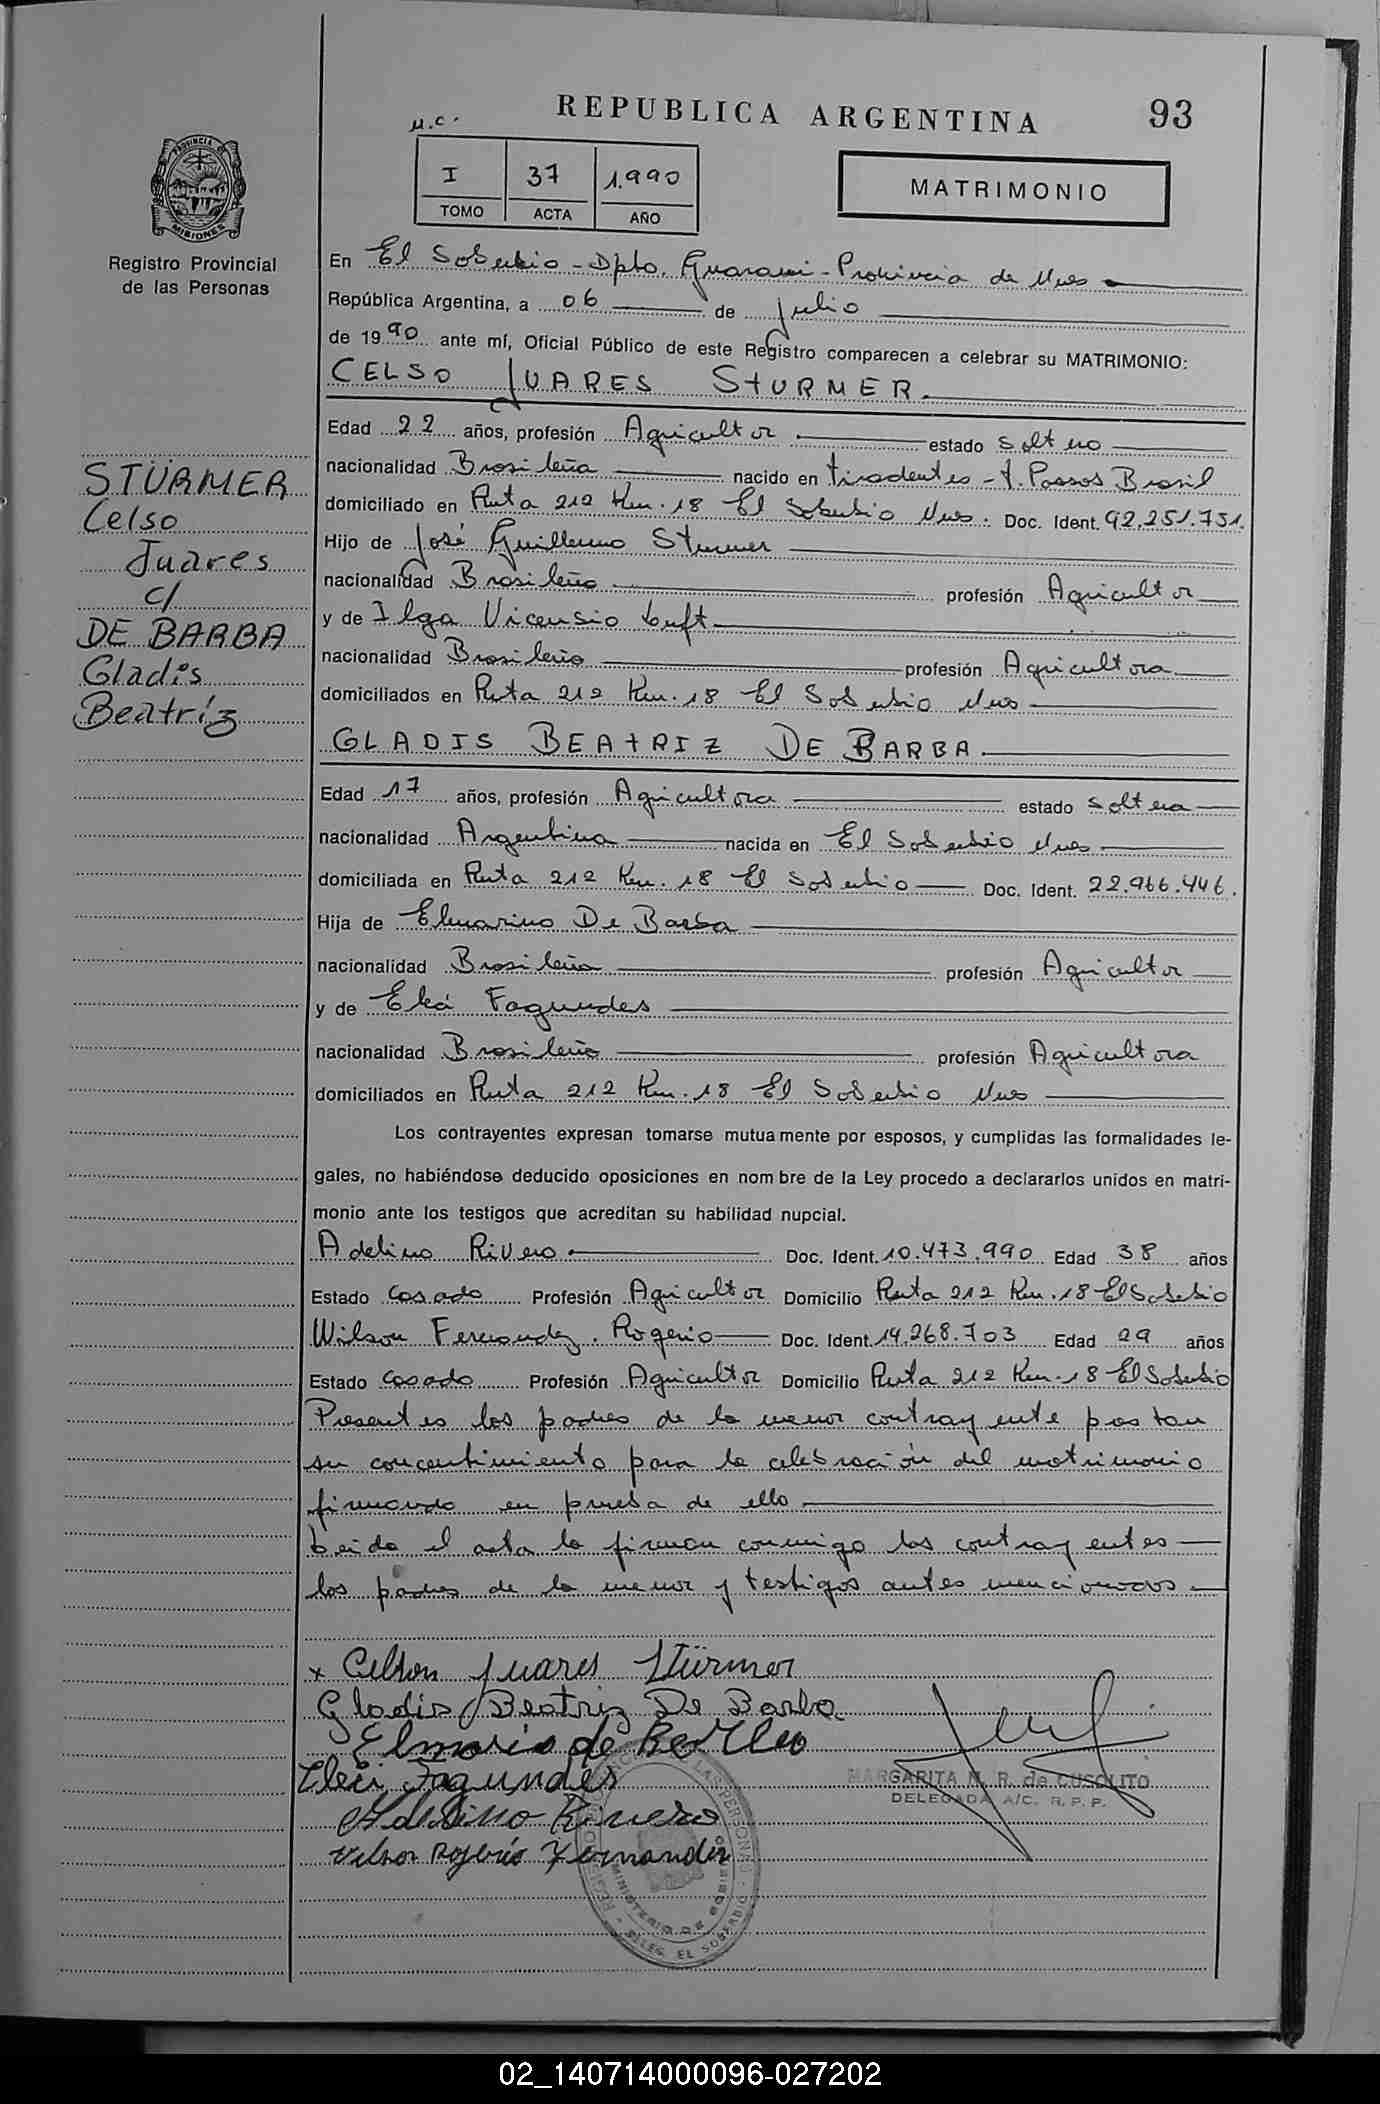 REPUBLICA ARGENTINA 93
M.C.
I 37 1.990
TOMO ACTA AÑO
MATRIMONIO
PROVINCIA DE MISIONES
Registro Provincial
de las Personas
En El Soberbio - Dpto. Guarani - Provincia de Mnes
República Argentina, a 06 de Julio
de 1990 ante mí, Oficial Público de este Registro comparecen a celebrar su MATRIMONIO:
CELSO JUARES STURMER.
Edad 22 años, profesión Agricultor estado Soltero
nacionalidad Brasileña nacido en Tiradentes - T. Passos Brasil
domiciliado en Ruta 212 Km. 18 El Soberbio Mnes. Doc. Ident. 92.251.751.
Hijo de José Guillermo Sturmer
nacionalidad Brasileña profesión Agricultor
y de Ilga Vicensio Luft
nacionalidad Brasileña profesión Agricultora
domiciliados en Ruta 212 Km. 18 El Soberbio Mnes
GLADIS BEATRIZ DE BARBA.
Edad 17 años, profesión Agricultora estado Soltera
nacionalidad Argentina nacida en El Soberbio Mnes
domiciliada en Ruta 212 Km. 18 El Soberbio Doc. Ident. 22.966.446.
Hija de Elmarino De Barba
nacionalidad Brasileña profesión Agricultor
y de Fagundes
nacionalidad Brasileña profesión Agricultora
domiciliados en Ruta 212 Km. 18 El Soberbio Mnes
Los contrayentes expresan tomarse mutuamente por esposos, y cumplidas las formalidades le-
gales, no habiéndose deducido oposiciones en nombre de la Ley procedo a declararlos unidos en matri-
monio ante los testigos que acreditan su habilidad nupcial.
Adelino Rivero Doc. Ident. 10.473.990 Edad 38 años
Estado Casado Profesión Agricultor Domicilio Ruta 212 Km. 18 El Soberbio
Wilson Fernandez Rogerio Doc. Ident. 14.268.703 Edad 29 años
Estado Casado Profesión Agricultor Domicilio Ruta 212 Km. 18 El Soberbio
Presentes los padres de la menor contrayente prestan
su concentimiento para la celebración del matrimonio
firmando en prueba de ello
Leida el acta la firman conmigo los contrayentes
los padres de la menor y testigos antes mencionados
STÜRMER
Celso
Juares
c/
DE BARBA
Gladis
Beatríz
x Celson Juares Stürmer
Gladis Beatriz De Barba
Elmario de
Eleci Fagundes
Adelino Rivero
Vilson Rogerio Fernandes
MARGARITA N. R. de CUSOLITO
DELEGADA A/C. R. P. P.
DE LAS PERSONAS
MINISTERIO DE GOBIERNO
DELEG. EL SOBERBIO
02_140714000096-027202